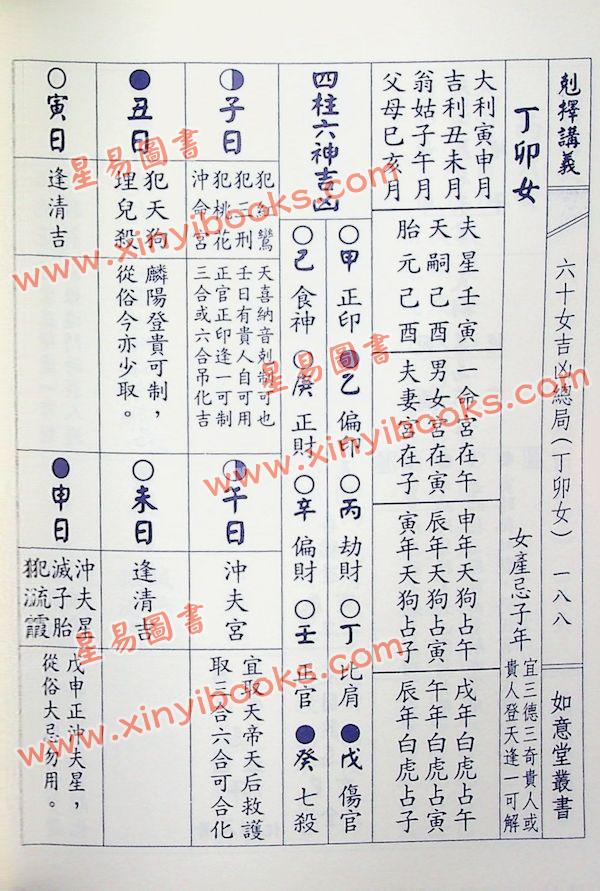 剋擇講義
六十女吉凶總局(丁卯女)
一八八
如意堂叢書
丁卯女
女產忌子年
宜三德三奇貴人或
貴人登天逢一可解
大利寅申月
吉利丑未月
翁姑子午月
父母巳亥月
夫星壬寅
天嗣己酉
胎元己酉
一命宮在午
男女宮在寅
夫妻宮在子
申年天狗占午
辰年天狗占寅
寅年天狗占子
戌年白虎占午
午年白虎占寅
辰年白虎占子
四柱六神吉凶
○甲 正印
乙 偏印
○丙 劫財
○丁 比肩
●戊 傷官
○己 食神
○庚 正財
○辛 偏財
○壬 正官
●癸 七殺
◐子日
犯紅鸞
犯三刑
犯桃花
沖命宮
天喜納音剋制可也
壬日有貴人自可用
正官正印逢一可制
三合或六合吊化吉
午日
沖夫宮
宜取天帝天后救護
取三合六合可合化
●丑日
犯天狗
埋兒殺
麟陽登貴可制,
從俗今亦少取。
○未日
逢清吉
○寅日
逢清吉
●申日
沖夫星
滅子胎
犯流霞
戊申正沖夫星,
從俗大忌勿用。
星易圖書
www.xinyibooks.com
星易圖書
www.xinyibooks.com
星易圖書
www.xinyibooks.com